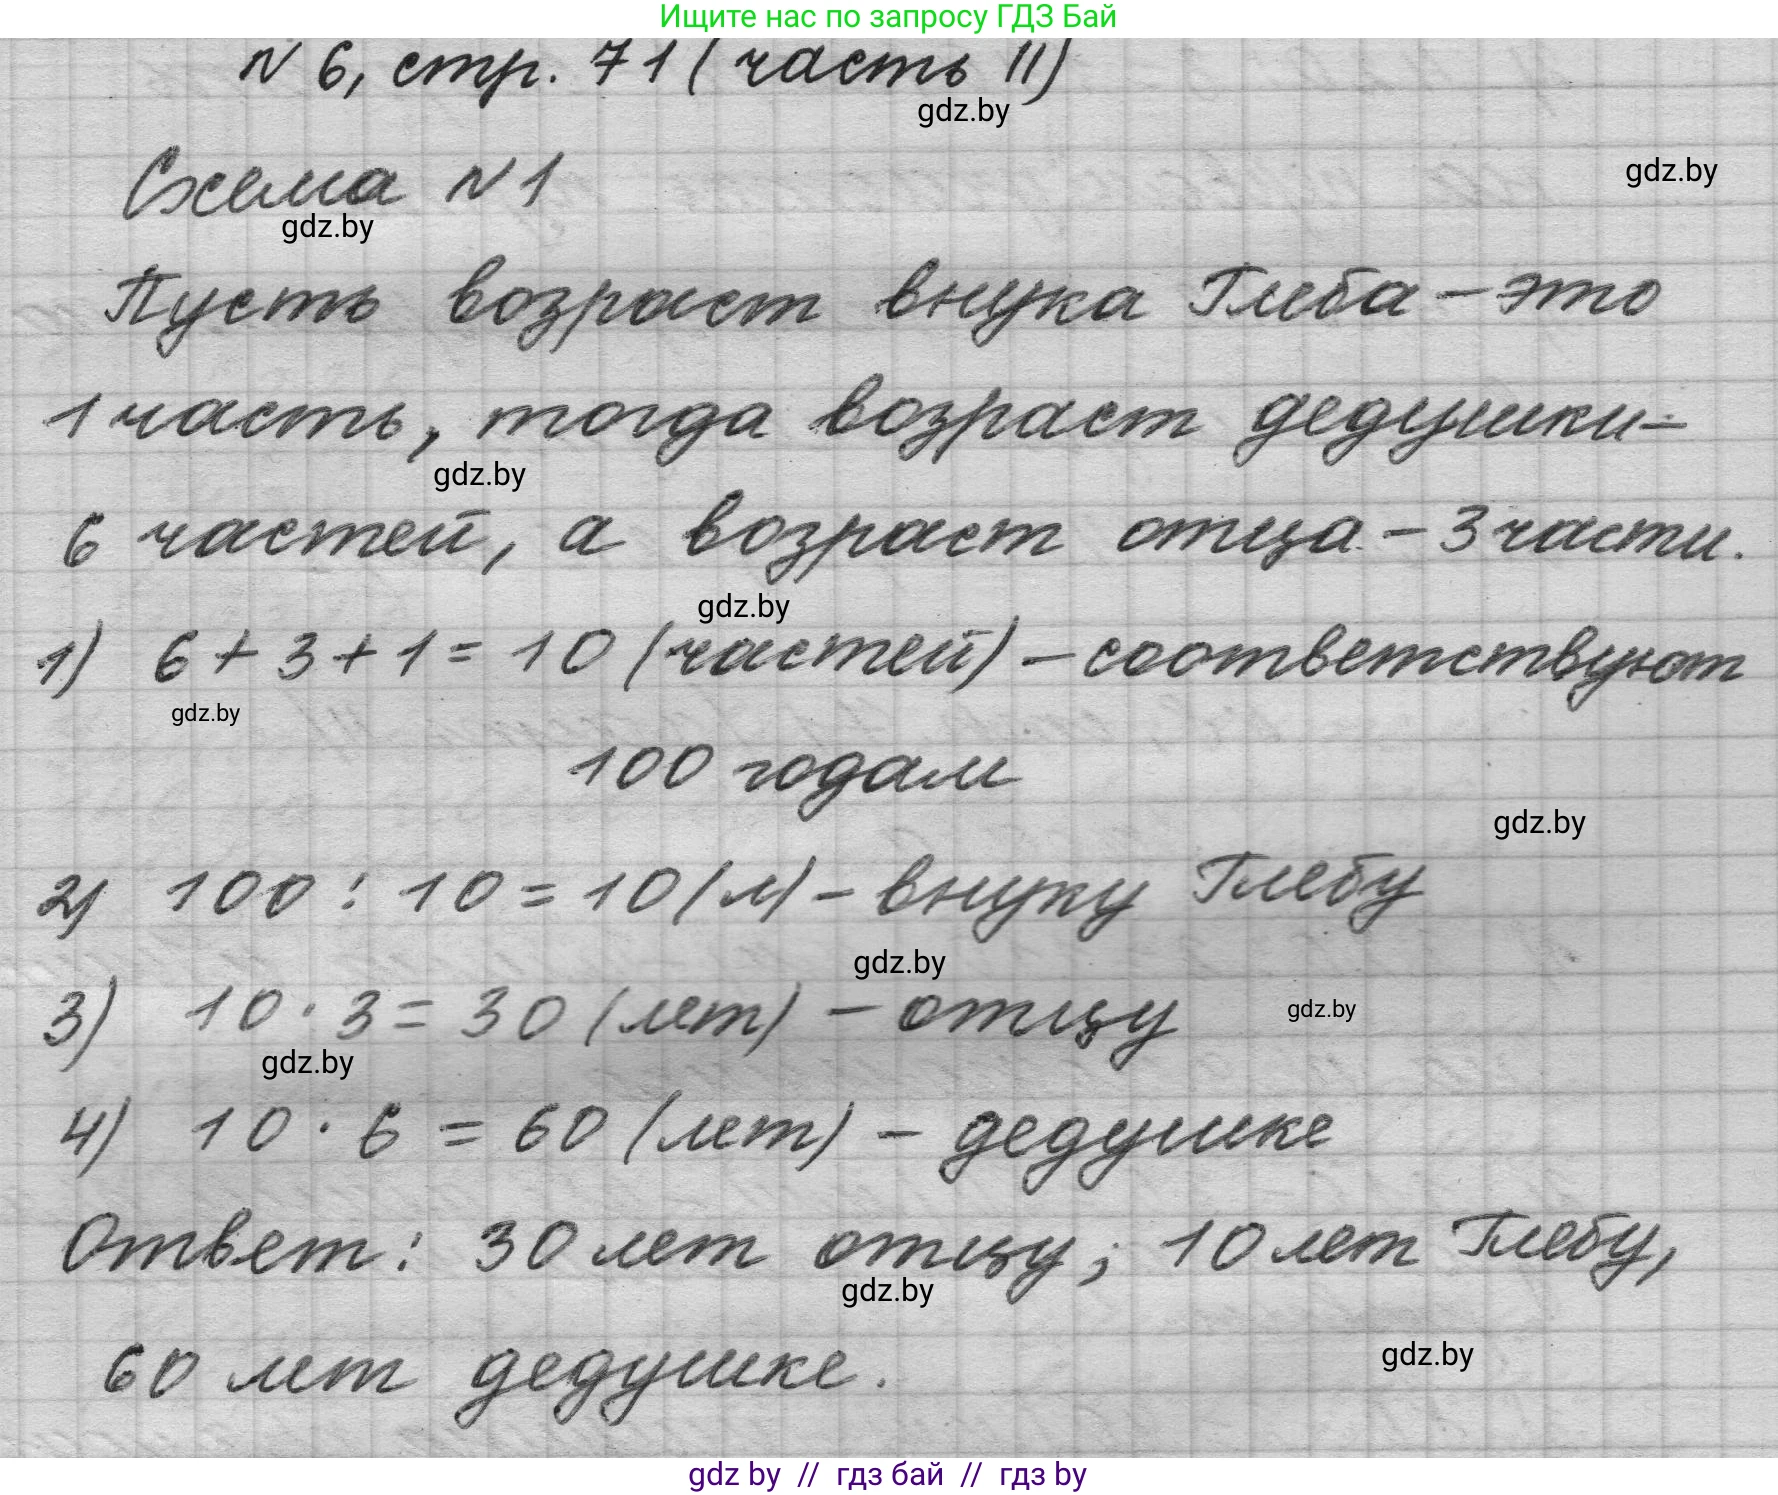 Ищите нас по запросу ГДЗ Бай
N 6, стр. 71 (часть II)
gdz.by
Схема N 1
gdz.by
gdz.by
Пусть возраст внука Глеба - это
1 часть, тогда возраст дедушки -
gdz.by
6 частей, а возраст отца - 3 части.
gdz.by
1) 6 + 3 + 1 = 10 (частей) - соответствуют
gdz.by
100 годам
gdz.by
2) 100 : 10 = 10 (л) - внуку Глебу
gdz.by
3) 10 · 3 = 30 (лет) - отцу
gdz.by
gdz.by
4) 10 · 6 = 60 (лет) - дедушке
Ответ: 30 лет отцу; 10 лет Глебу,
gdz.by
60 лет дедушке.
gdz.by
gdz by // гдз бай // гдз by